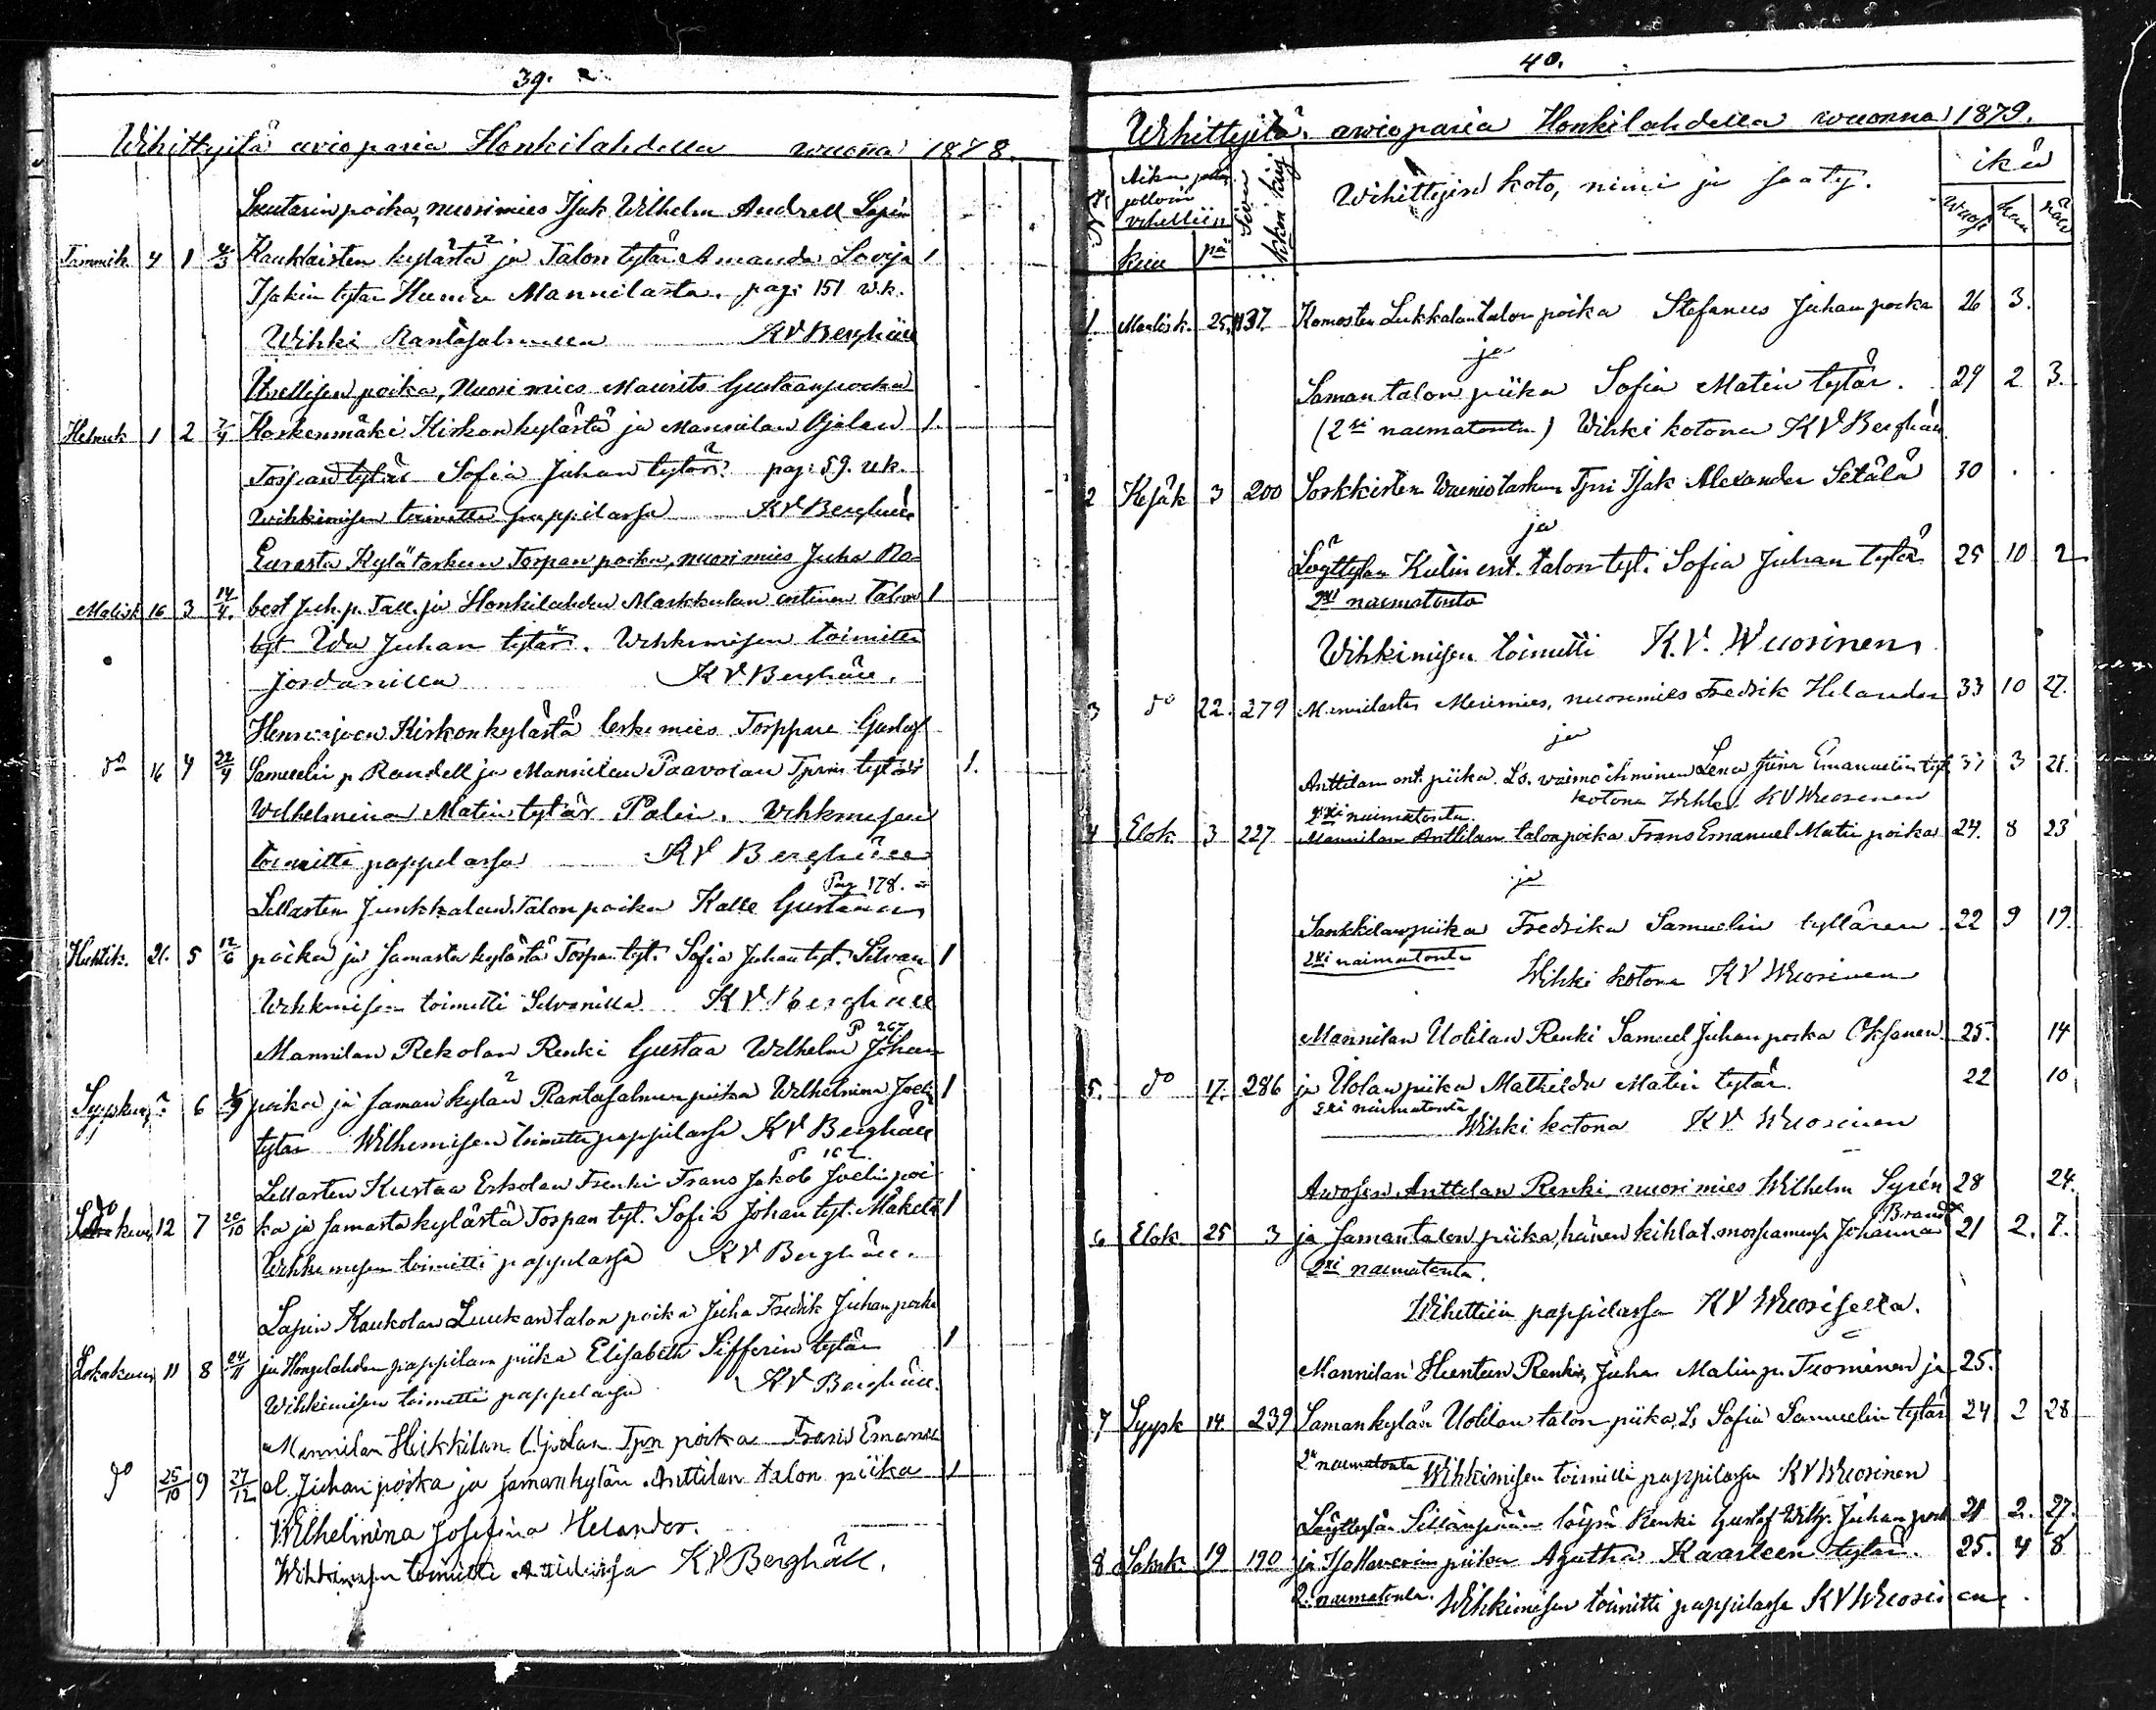 39.
Wihittyitä avioparia Honkilahdella wuonna 1878.
poika, nuorimies Isak Wilhelm Andrell Lapin
Tammik 4 1 4/3 Kaukkisten kylästä ja Talon tytär Amanda Lovisa 1
Isakin tytär Mannilasta. pag: 151 w.k.
Wihki Rantasalmella KV Berghäll
Itsellisen poika, Nuorimies Maurits Gustaanpoika
Helmik 1 2 7/4 Koskenmäki Kirkonkylästä ja Mannilan Ojalan 1.
Torpan tytär Sofia Juhan tytär. pag: 59. uk.
wihkimisen toimitti pappilassa KV Berghäll
Eurasta Kylätaskun Torpan poika, nuorimies Juha Ro-
Malisk 16 3 14/4. bert Juh.p. Tall. ja Honkilahden Markkulan entinen Talon 1
tyt Ida Juhan tytär. Wihkimisen toimitti
Jordanilla KV Berghäll.
Henrinjoen Kirkonkylästä leskimies Torppari Gustaf
do 16 4 22/4 Samuelin p Randell ja Mannilan Paavolan Tprin tytär 1.
Wilhelmina Matin tytär Palin. Wihkimisen
toimitti pappilassa KV Berghäll
Pag 178.
Lellaisten Junkkalan Talon poika Kalle Gustaan
Huhtik. 21. 5 12/6 poika ja samasta kylästä Torpan tyt. Sofia Juhan tyt. Silvan 1
Wihkimisen toimitti Silvanilla KV Berghäll
P 267
Mannilan Rekolan Renki Gustaa Wilhelm Johan
Syyskuu 6 poika ja saman kylän Rantasalmen piika Wilhelmina Joelin 1
tytär Wihkimisen toimitti pappilassa KV Berghäll
Lellaisten Kustaa Erkolan Frenki Frans Jakob Joelin poi-
do 12 7 20/10 ka ja samasta kylästä Torpan tyt. Sofia Johan tyt. Mäkelä 1
Wihkimisen toimitti pappilassa KV Berghäll.
Lapin Kaukolan Luukan talon poika Juha Fredik Juhan poika
Lokakuu 11 8 24/11 ja Hongilahden pappilan piika Elisabeth Sifferin tytär 1
Wihkimisen toimitti pappilassa KV Berghäll.
Mannilan Heikkilan Ojalan Tpn poika Frans Emanu-
do 25/10 9 27/12 el Juhan poika ja samankylän Anttilan talon piika 1
Wilhelmina Josefina Helander.
Wihkimisen toimitti Anttilassa KV Berghäll.
40.
Wihittyitä avioparia Honkilahdella wuonna 1879.
No. Aika jolloin vihittiin Sivu Wihittyin koto, nimi ja sääty. ikä
kuu pä wuosi kuu päiv
1. Maalisk. 25. 137. Komosten Lukkalan talon poika Stefanus Juhan poika 26 3.
ja
Saman talon piika Sofia Matin tytär. 29 2 3.
(2si naematonta) Wihki kotona KV Berghäll
2 Kesäk 3 200 Sorkkisten Tpri Isak Alexander Setälä 30
ja
Löyttylän Kulin ent. talon tyt. Sofia Juhan tytär 25 10 2
2xi naematonta
Wihkimisen toimitti K.V. Wuorinen
3 do 22. 279 Mannilasta Merimies, nuorimies Fredrik Helander 33 10 27.
ja
Anttilan ent. piika Ls. waimoihminen Lena Stina Emanuelin tyt 37 3 21.
kotona Wihki KV Wuorinen
2xi naimatonta
4 Elok. 3 227 Mannilan Anttilan talon poika Frans Emanuel Matin poika 24. 8 23
ja
Sankkilan piika Fredrika Samuelin tyttären 22 9 19.
2xi naimatonta
Wihki kotona KV Wuorinen
Mannilan Uotilan Renki Samuel Juhan poika Oksanen. 25. 14
5. do 17. 286 ja Uolan piika Mathilda Matin tytär. 22 10
2xi naimatonta
Wihki kotona KV Wuorinen
Auvosen Anttilan Renki nuorimies Wilhelm Syrén 28 24.
Brandt
6 Elok 25 3 ja saman talon piika, hänen kihlat. morsiamensa Johanna 21 2. 7.
2xi naematonta.
Wihittiin pappilassa KV Wuoriselta.
Mannilan Renki, Juha Matin p. Tuominen ja 25.
7 Syysk 14. 239 Samankylän Uotilan talon piika, Ls Sofia Samuelin tytär 24 2 28
2xi naematonta Wihkimisen toimitti pappilassa KV Wuorinen
Löyttylän Sillanpään Renki Gustaf Wilh. Juhan poik 21 2. 27.
8 Lokak. 19 190 ja piika Agatha Kaarleen tytär. 25. 4 8
2. naematonta. Wihkimisen toimitti pappilassa KV Wuorinen.